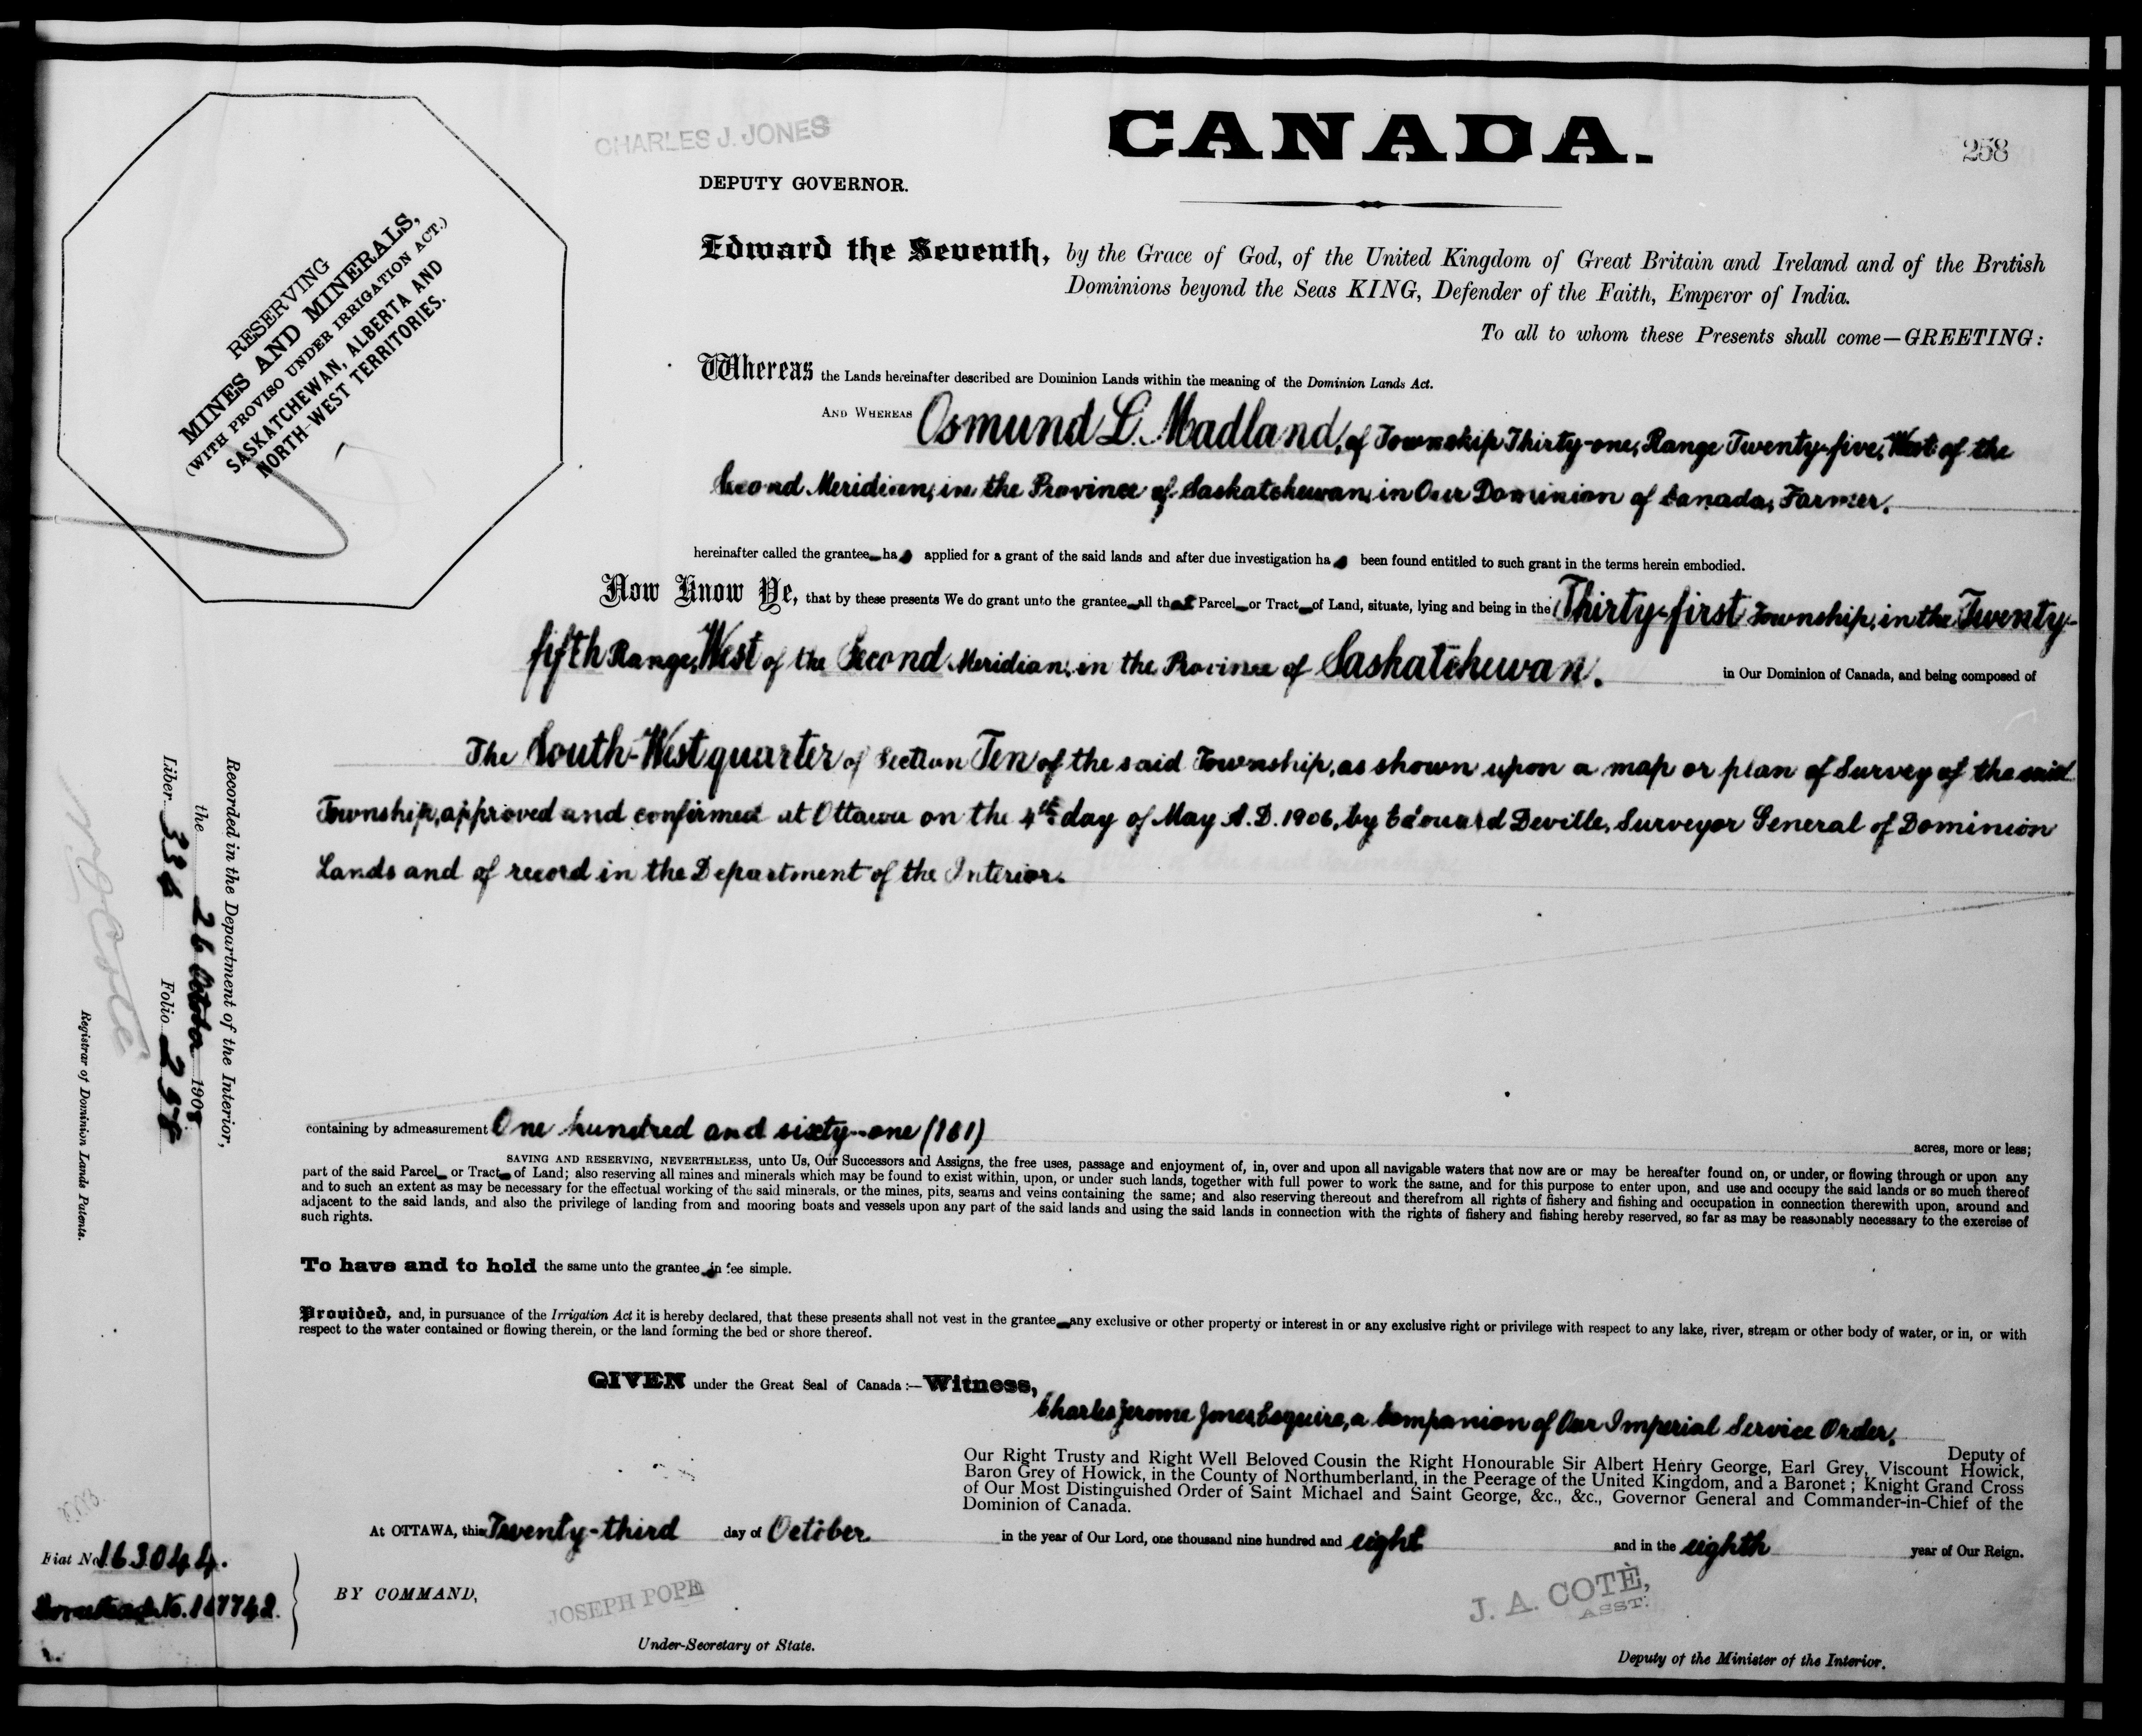 CHARLES J. JONES
CANADA.
258
DEPUTY GOVERNOR.
RESERVING
MINES AND MINERALS,
(WITH PROVISO UNDER IRRIGATION ACT.)
SASKATCHEWAN, ALBERTA AND
NORTH-WEST TERRITORIES.
Edward the Seventh, by the Grace of God, of the United Kingdom of Great Britain and Ireland and of the British
Dominions beyond the Seas KING, Defender of the Faith, Emperor of India.
To all to whom these Presents shall come—GREETING:
Whereas the Lands hereinafter described are Dominion Lands within the meaning of the Dominion Lands Act.
AND WHEREAS Osmund L. Madland, of Township Thirty-one, Range Twenty-five, West of the
Second Meridian, in the Province of Saskatchewan, in Our Dominion of Canada, Farmer.
hereinafter called the grantee ha s applied for a grant of the said lands and after due investigation ha s been found entitled to such grant in the terms herein embodied.
Now Know Ye, that by these presents We do grant unto the grantee all that Parcel or Tract of Land, situate, lying and being in the Thirty-first Township, in the Twenty-
fifth Range, West of the Second Meridian, in the Province of Saskatchewan. in Our Dominion of Canada, and being composed of
The South-West quarter of Section Ten of the said Township, as shown upon a map or plan of Survey of the said
Township, approved and confirmed at Ottawa on the 4th day of May A.D. 1906, by Edouard Deville, Surveyor General of Dominion
Lands and of record in the Department of the Interior.
Recorded in the Department of the Interior,
the 26 October 1908
Liber 336 Folio 258
N O Coté
Registrar of Dominion Lands Patents.
containing by admeasurement One hundred and sixty-one (161) acres, more or less;
SAVING AND RESERVING, NEVERTHELESS, unto Us, Our Successors and Assigns, the free uses, passage and enjoyment of, in, over and upon all navigable waters that now are or may be hereafter found on, or under, or flowing through or upon any
part of the said Parcel or Tract of Land; also reserving all mines and minerals which may be found to exist within, upon, or under such lands, together with full power to work the same, and for this purpose to enter upon, and use and occupy the said lands or so much thereof
and to such an extent as may be necessary for the effectual working of the said minerals, or the mines, pits, seams and veins containing the same; and also reserving thereout and therefrom all rights of fishery and fishing and occupation in connection therewith upon, around and
adjacent to the said lands, and also the privilege of landing from and mooring boats and vessels upon any part of the said lands and using the said lands in connection with the rights of fishery and fishing hereby reserved, so far as may be reasonably necessary to the exercise of
such rights.
To have and to hold the same unto the grantee in fee simple.
Provided, and, in pursuance of the Irrigation Act it is hereby declared, that these presents shall not vest in the grantee any exclusive or other property or interest in or any exclusive right or privilege with respect to any lake, river, stream or other body of water, or in, or with
respect to the water contained or flowing therein, or the land forming the bed or shore thereof.
GIVEN under the Great Seal of Canada:—Witness,
Charles Jerome Jones, Esquire, a Companion of Our Imperial Service Order,
Deputy of
Our Right Trusty and Right Well Beloved Cousin the Right Honourable Sir Albert Henry George, Earl Grey, Viscount Howick,
Baron Grey of Howick, in the County of Northumberland, in the Peerage of the United Kingdom, and a Baronet; Knight Grand Cross
of Our Most Distinguished Order of Saint Michael and Saint George, &c., &c., Governor General and Commander-in-Chief of the
Dominion of Canada.
At OTTAWA, this Twenty-third day of October in the year of Our Lord, one thousand nine hundred and eight and in the eighth year of Our Reign.
Fiat No. 163044.
Homestead No. 167742.
BY COMMAND,
JOSEPH POPE
Under-Secretary of State.
J. A. COTÉ,
ASST.
Deputy of the Minister of the Interior.